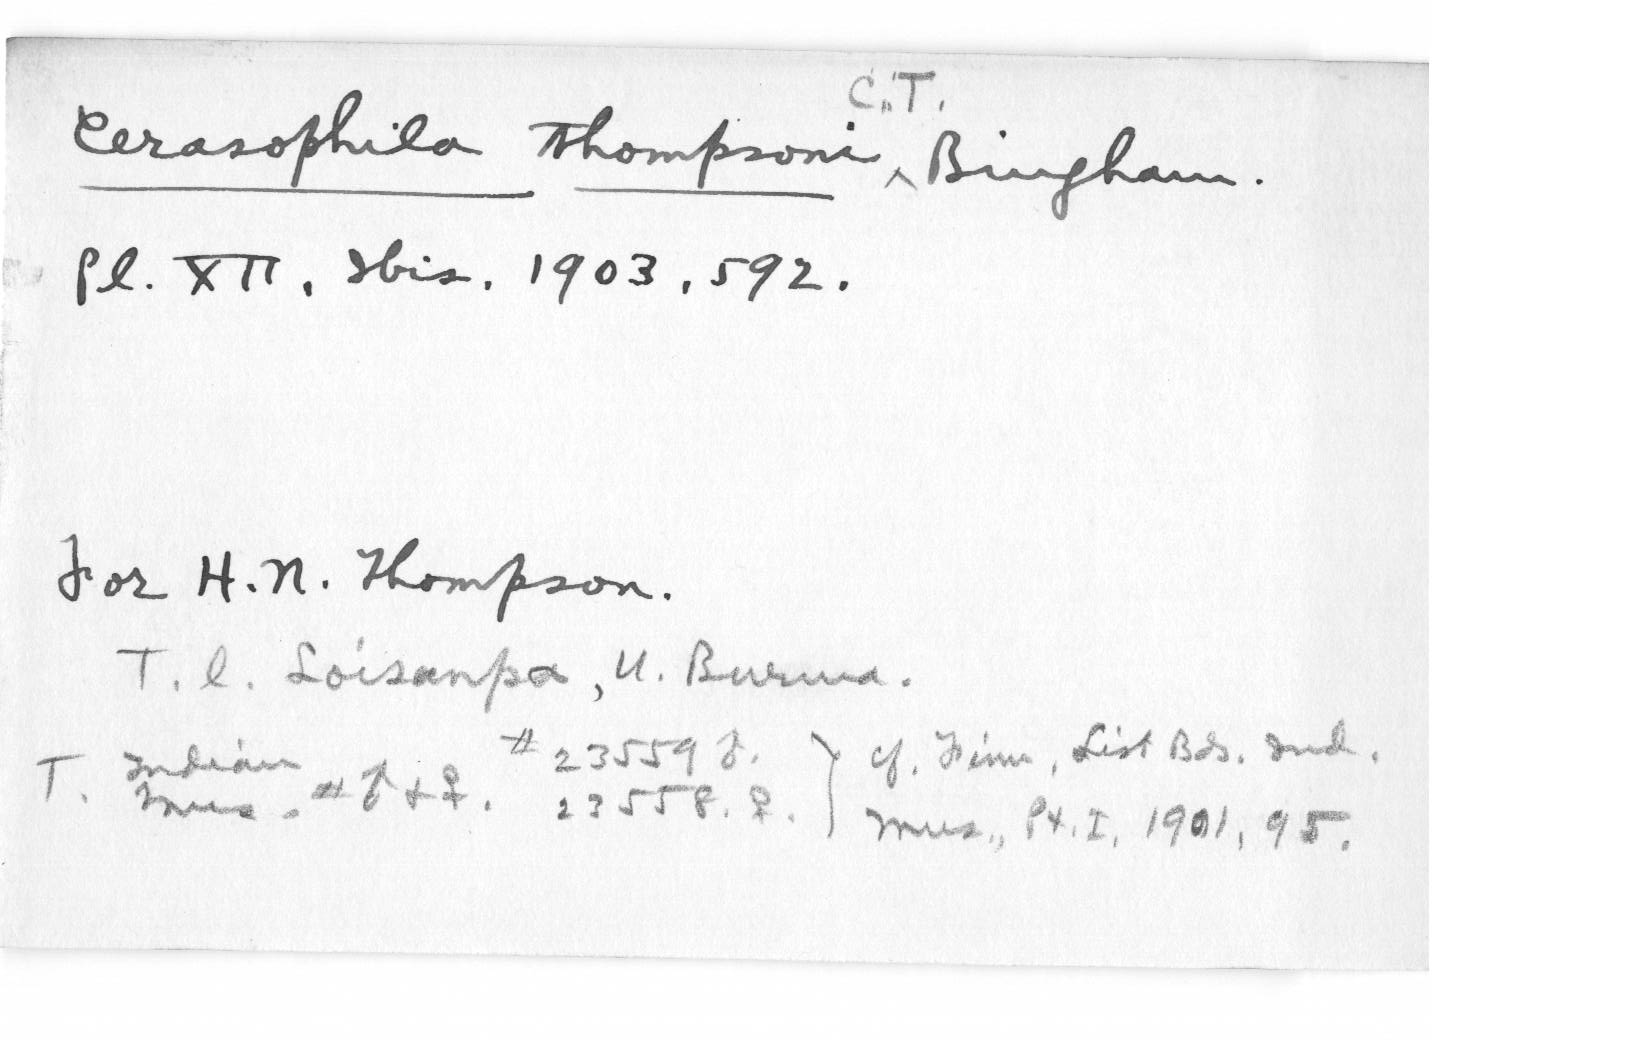 Cerasophila Thompsoni ^C.T. Bingham.
Pl. XII, Ibis. 1903, 592.
For H.N. Thompson.
T. l. Loisanpa, U. Burma.
T. Indian Mus. # ♂ + ♀. # 23559 ♂. } cf. Finn, List Bds. Ind.
23558. ♀. Mus., Pt. I, 1901, 95.